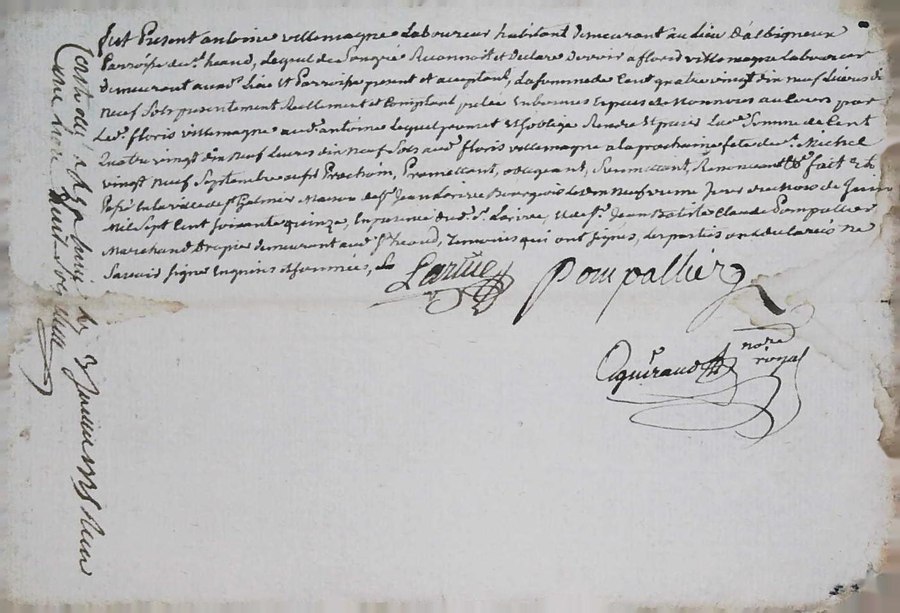 fut Present antoine villemagne Laboureur habitant demeurant au Lieu d'albigneux
Parroisse de St heand, Lequel de son gré Reconnoit et Declare Devoir a floris villemagne Laboureur
demeurant aud. Lieu et Parroisse present et aceptant, La somme de Cent quatre vingt dix neuf Livres dix
neuf Sols presentement Reellement et Comptant en bonnes Espeses de Monnoies au Cours par
Led. floris villemagne aud. antoine Lequel promet et s'oblige Rendre et paier Lad. Somme de Cent
Quatre vingt dix neuf Livres dix neuf Sols aud. floris villemagne a la prochaine fete de St. Michel
vingt neuf Septembre Prochain, Promettant, obligeant, Soumettant, Renonçant &c. fait et
Passé en La ville de St Galmier Maison de Sr Jean Larive Bourgeois Le dix Neufvieme Jour du Mois de Juin
Mil Sept Cent Soixante quinze, En presence dud. Sr. Larive, et de Sr. Jean Batiste Claude Pompallier
Marchand Drapier demeurant aud. St heand, Temoins qui ont signés, Les parties ont declarés ne
Savoir signer Enquises et sommées,
Larive Pompallier
aguiraud nore
royal
Conto a St
une livre huit sols